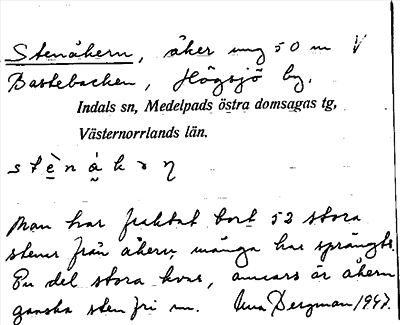 Stenåkern, åker ung 50 m V
Bastebacken, Högsjö by.
Indals sn, Medelpads östra domsagas tg,
Västernorrlands län.
stè̱nȧ̱kəɳ
Man har fraktat bort 52 stora
stenar från åkern, många har sprängts.
En del stora kvar, annars är åkern
ganska stenfri nu. Una Bergman 1947.